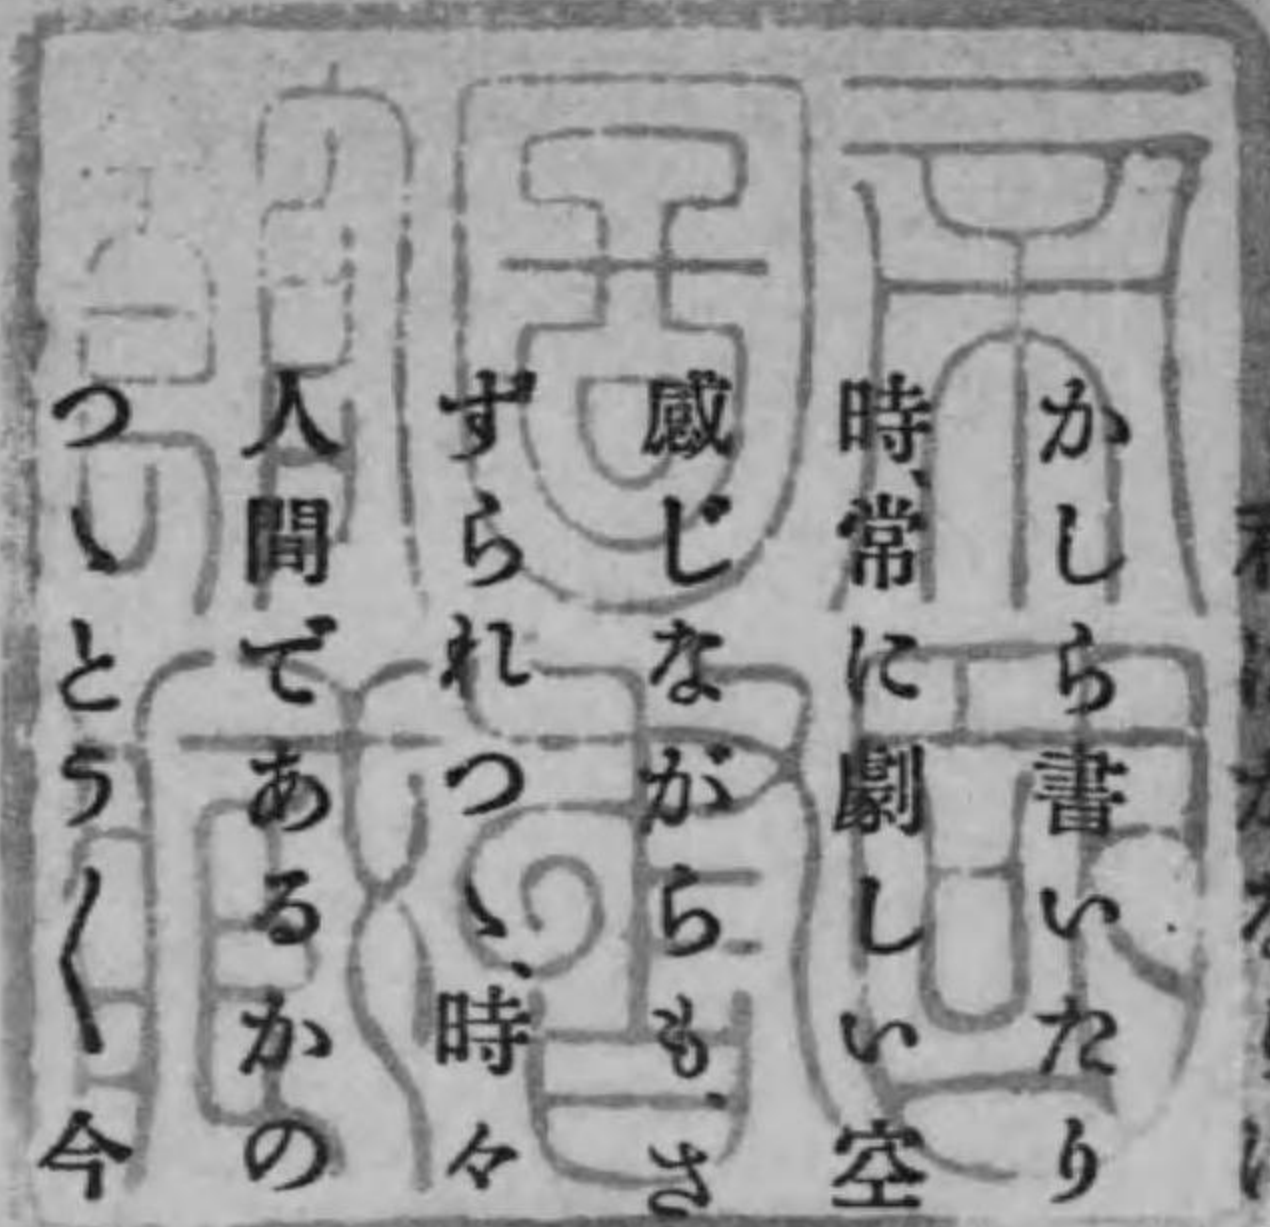 かしら書いたり
時、常に劇しい空
感じながらも、さ
ずられつゝ、時々
人間であるかの
つゝとう〱今
帝國
圖書
館藏